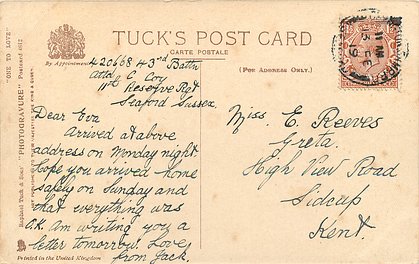 TUCK'S POST CARD
CARTE POSTALE
By Appointment
(FOR ADDRESS ONLY.)
"ONE TO LOVE"
"PHOTOGRAVURE" Postcard 4512
Raphael Tuck & Sons'
420668 43rd Battn
Attd C Coy
11th Reserve Rgt
Seaford Sussex
Dear Eva
Arrived at above
address on Monday night.
Hope you arrived home
safely on Sunday and
that everything was
O.K. Am writing you a
letter tomorrow. Love
from Jack
Miss. E. Reeves
Greta.
High View Road
Sidcup
Kent.
Printed in the United Kingdom